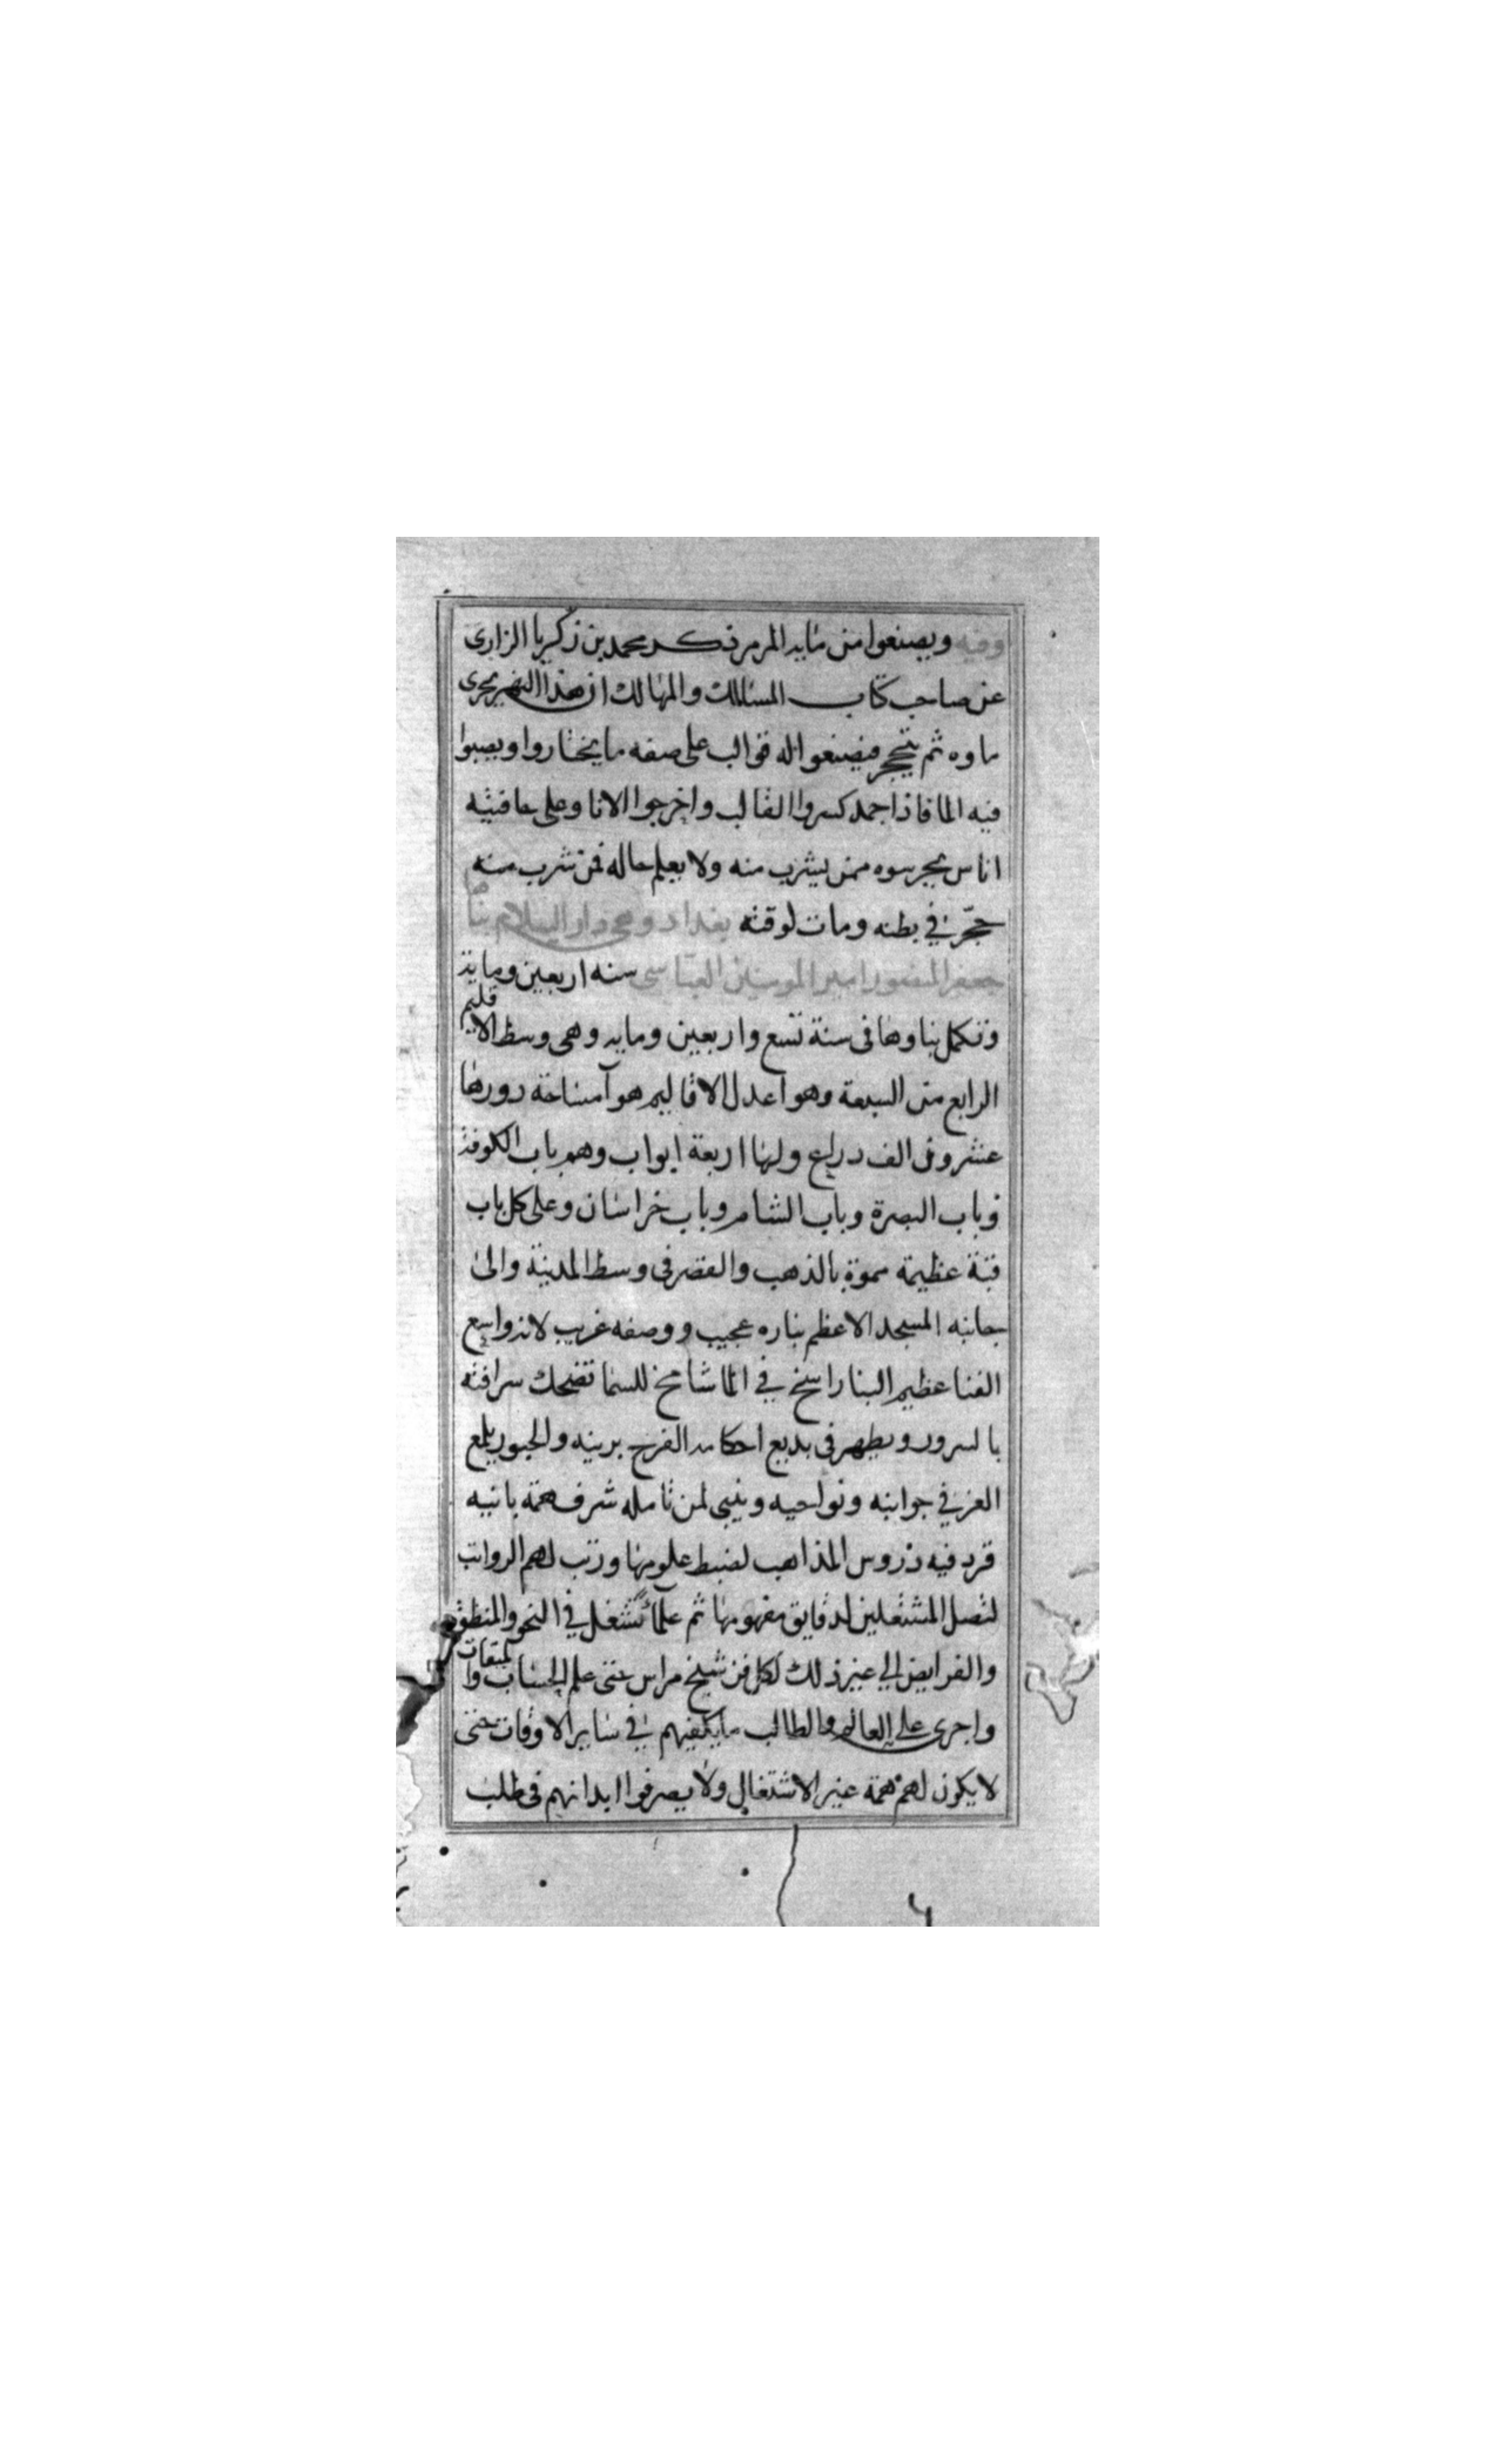 وفيه ويصنعوا من مايه المرمر ذكر محمد بن زكريا الرازى
عن صاحب كتاب المسالك والممالك ان هذا النهر يجرى
ماوه ثم يتحجر فيصنعوا له قوالب على صفه ما يختاروا ويصبوا
فيه الما فاذا جمد كسروا القالب واخرجوا الانا وعلى حافتيه
اناس يحرسوه ممن يشرب منه ولا يعلم حاله فمن شرب منه
حجر في بطنه ومات لوقته بغداد وهي دار السلام بناها
جعفر المنصور امير المومنين العباسى سنه اربعين ومايه
وتكمل بناوها فى سنة تسع واربعين ومايه وهى وسط الاقليم
الرابع من السبعة وهو اعدل الاقاليم هوآ مساحة دورها
عشرون الف دراع ولها اربعة ابواب وهم باب الكوفة
وباب البصرة وباب الشام وباب خراسان وعلى كل باب
قبة عظيمة مموة بالذهب والقصر فى وسط المدينة والى
جانبه المسجد الاعظم بناره عجيب ووصفه غريب لانه واسع
الفنا عظيم البنا راسخ في الما شامخ للسما تضحك سرافته
بالسرور ويظهر فى بديع احكامه الفرح بزينه والحبور يلمع
العز في جوانبه ونواحيه وينبى لمن تامله شرف همة بانيه
قرر فيه دروس المذاهب لضبط علومها ورتب لهم الرواتب
لتصل المشتغلين لدقايق مفهومها ثم علمآ تشتغل في النحو والمنطق
والفرايض الي غير ذلك لكل فن شيخ مراس حتى علم الحساب والميقات
واجرى على العالم والطالب ما يكفيهم في ساير الاوقات حتى
لا يكون لهم همة غير الاشتغال ولا يصرفوا ابدانهم فى طلب